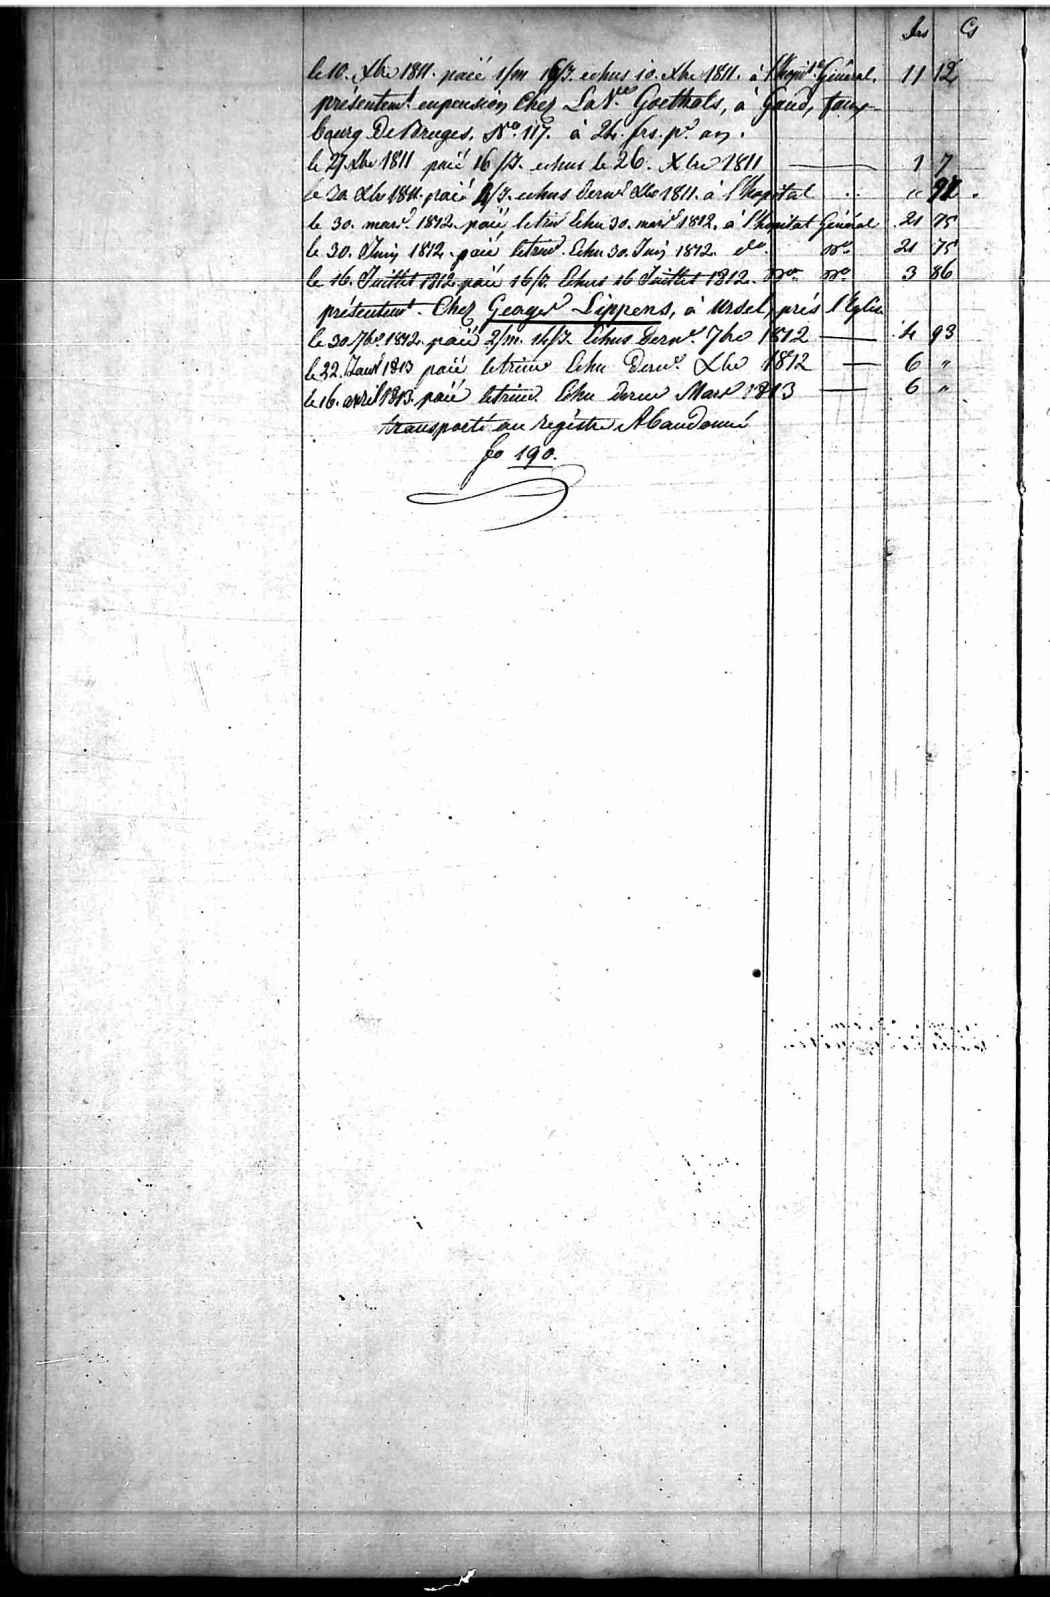 frs Cs
le 10. Xbre 1811. paié 1/m 16/J. echus 10. Xbre 1811. à l'hopital Général. 11 12
présentemt. en pension Chez La Ve. Goethals, à Gand, faux-
bourg De Bruges. No. 117. à 24. frs. pr. an.
le 27 Xbre 1811 paié 16/J. echus le 26. Xbre 1811 — 1 7
le 30 Xbre 1811. paié 4/J. echus dernr. Xbre 1811. à l'hopital " 97.
le 30. mars 1812. paié, le trire Echu 30. mars 1812. à l'hopital Général 21 75
le 30. Juin 1812. paié le trire. Echu 30. Juin 1812. do. Do. 21 75
le 16. Juillet 1812. paié 16/J. Echus 16 Juillet 1812. Do. Do. 3 86
présentemt. Chez George Lippens, à Ursel, prés l'Eglise
le 30 7bre 1812. paié 2/m. 14/J. Echus Dernr. 7bre 1812 — 4 93
le 22. Janvr 1813 paié le trime Echu Dernr. Xbre 1812 — 6 "
le 16. avril 1813. paié le trime. Echu dernr Mars 1813 6 "
transporté au régistre Abandonné
fo 190.